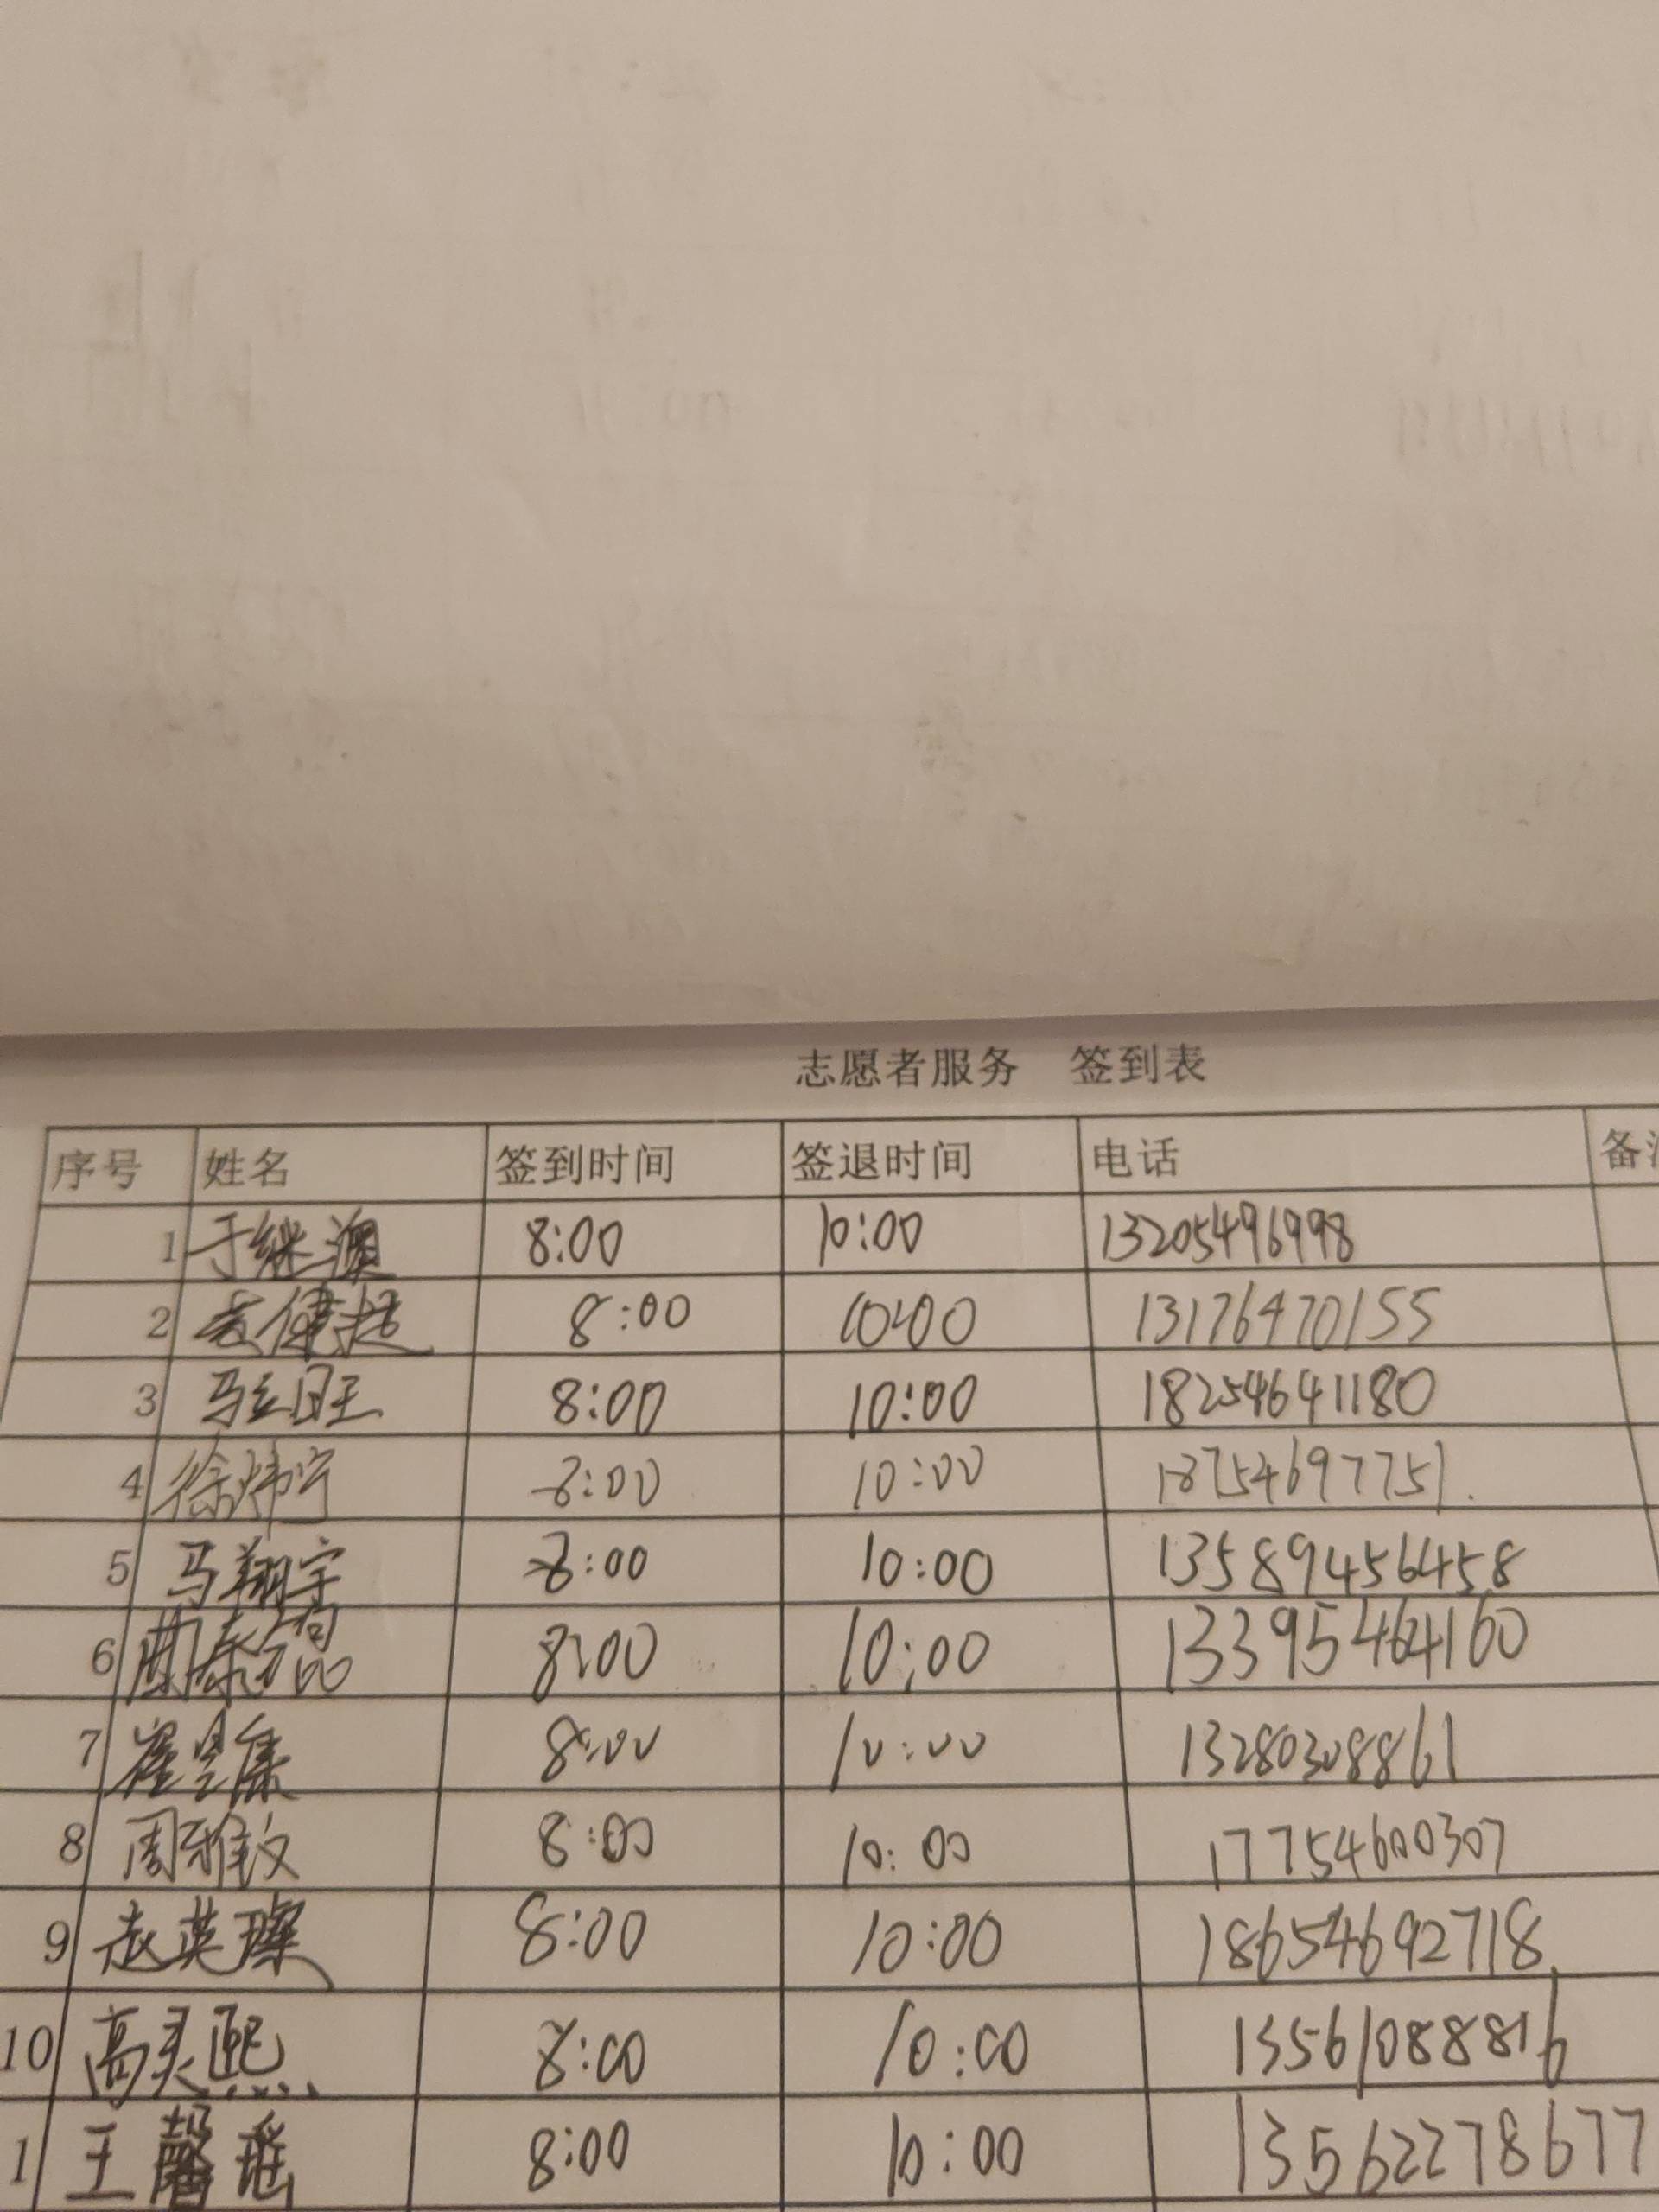 志愿者服务 签到表
序号 姓名 签到时间 签退时间 电话
1 于继澳 8:00 10:00 13205496998
2 8:00 10:00 13176470155
3 马 8:00 10:00 18254641180
4 徐炜宁 8:00 10:00 18754697751.
5 马翔宇 8:00 10:00 13589456458
6 8:00 10:00 13395464160
7 崔昱康 8:00 10:00 13280308861
8 周雅文 8:00 10:00 17754600307
9 赵英璨 8:00 10:00 18654692718
10 高灵熙 8:00 10:00 13561088816
1 王馨瑶 8:00 10:00 13562278677